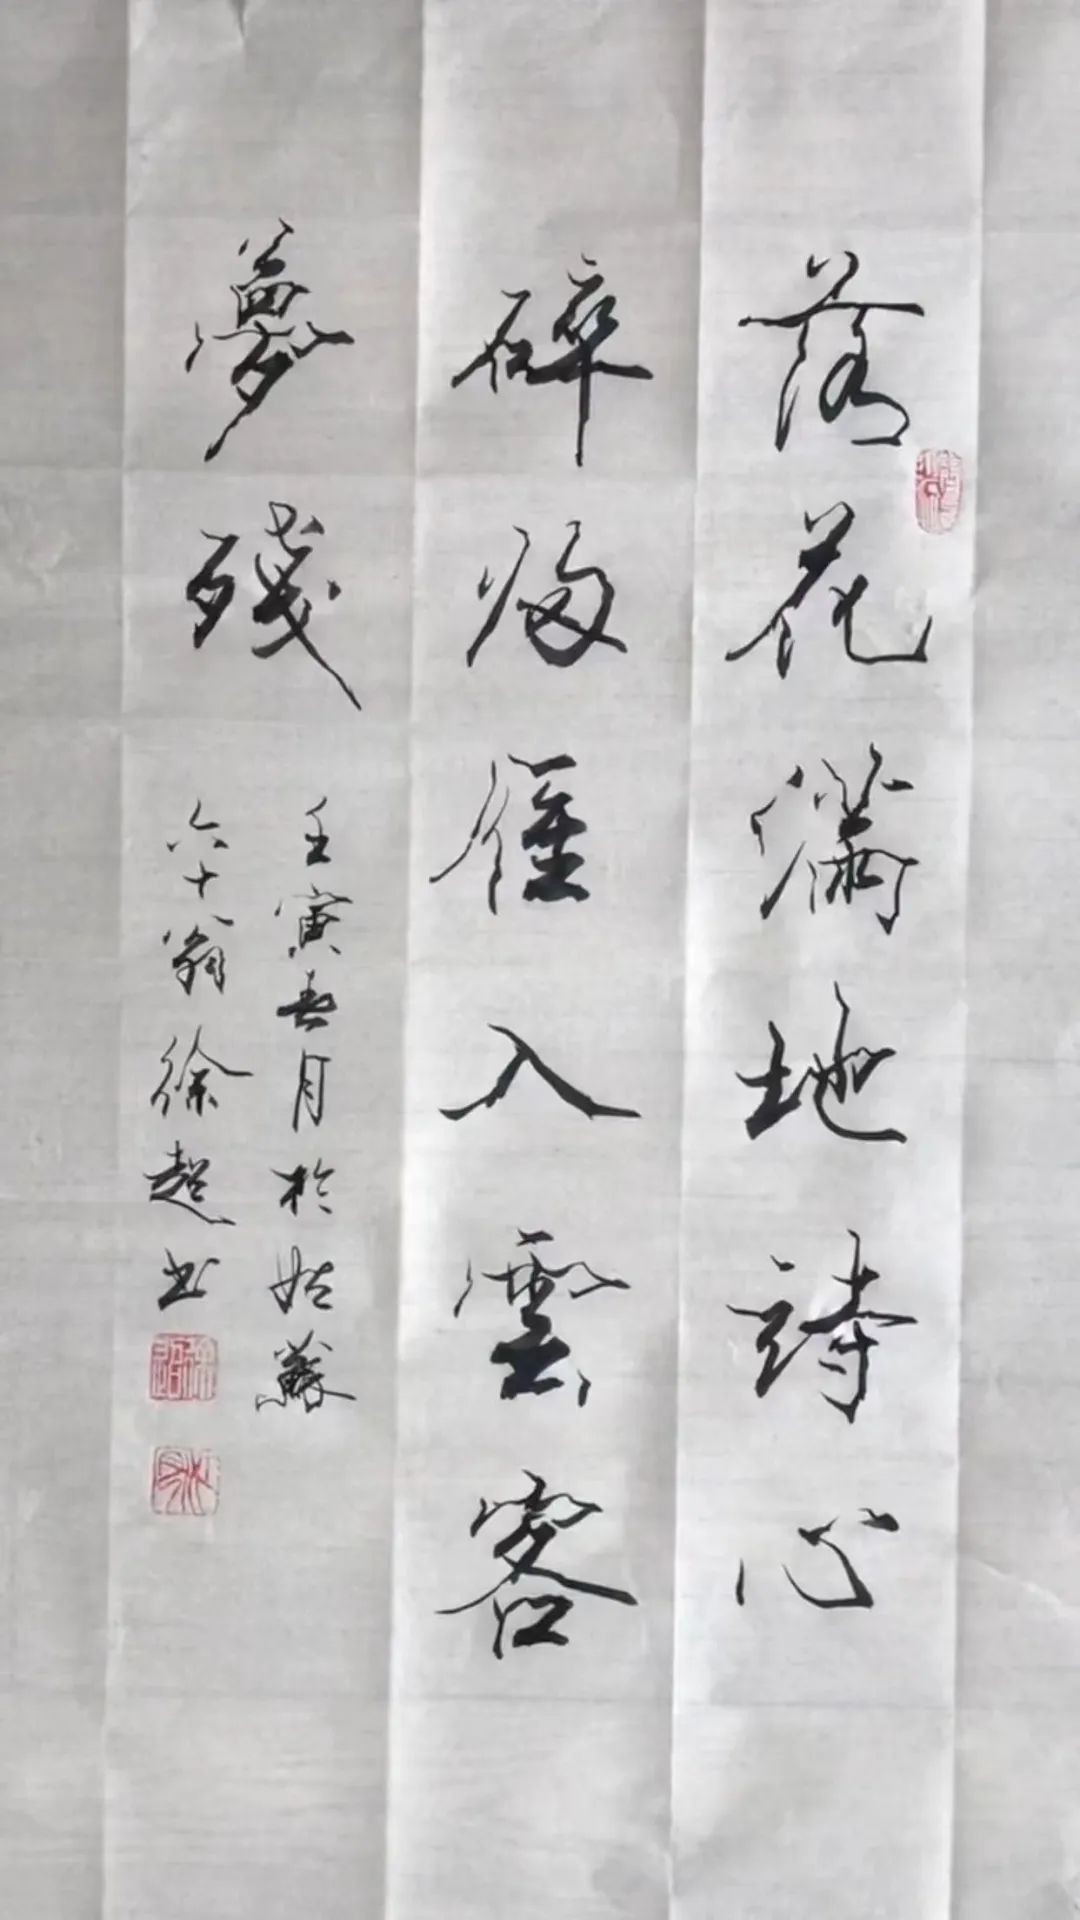 落花满地詩心
碎归雁入雲客
夢殘
壬寅春月於姑蘇
六十翁徐超书